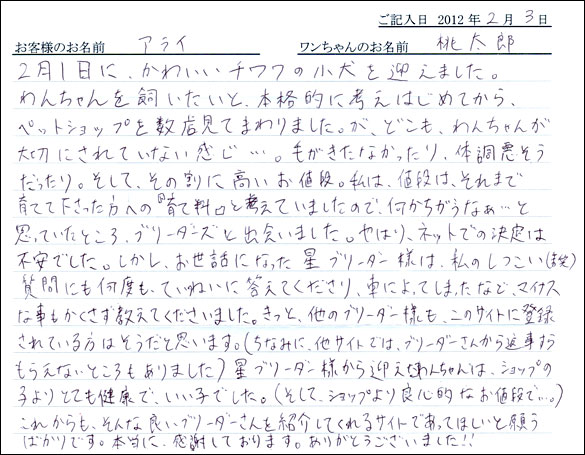 ご記入日 2012年2月3日
お客様のお名前 アライ ワンちゃんのお名前 桃太郎
2月1日に、かわいいチワワの小犬を迎えました。
わんちゃんを飼いたいと、本格的に考えはじめてから、
ペットショップを数店見てまわりました。が、どこも、わんちゃんが
大切にされていない感じ…。毛がきたなかったり、体調悪そう
だったり。そして、その割に高いお値段。私は、値段は、それまで
育てて下さった方への『育て料』と考えていましたので、何かちがうなぁ…と
思っていたところ、ブリーダーズと出会いました。やはり、ネットでの決定は
不安でした。しかし、お世話になった星ブリーダー様は、私のしつこい(笑)
質問にも何度も、ていねいに答えてくださり、車によってしまったなど、マイナス
な事もかくさず教えてくださいました。きっと、他のブリーダー様も、このサイトに登録
されている方はそうだと思います。(ちなみに、他サイトでは、ブリーダーさんから返事すら
もらえないところもありました)星ブリーダー様から迎えたわんちゃんは、ショップの
子よりとても健康で、いい子でした。(そして、ショップより良心的なお値段で…。)
これからも、そんな良いブリーダーさんを紹介してくれるサイトであってほしいと願う
ばかりです。本当に、感謝しております。ありがとうございました!!